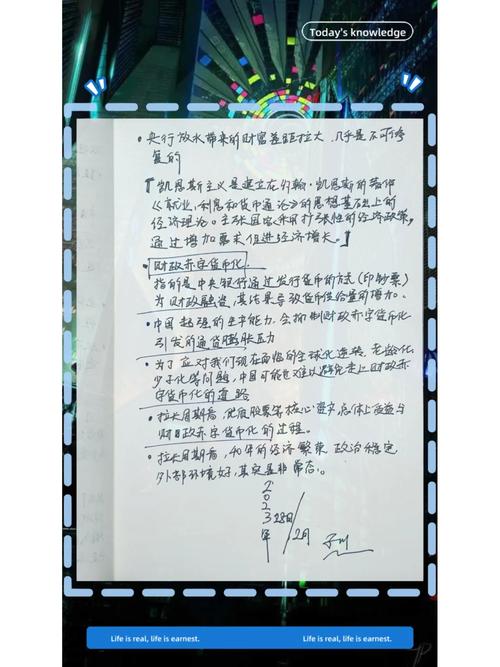 Today's knowledge
• 央行放水带来的财富差距拉大,几乎是不可修
复的
『凯恩斯主义是建立在约翰·凯恩斯的著作
《就业、利息和货币通论》的思想基础上的
经济理论。主张国家采用扩张性的经济政策,
通过增加需求促进经济增长。』
• 财政赤字货币化.
指的是中央银行通过发行货币的方式(印钞票)
为财政融资,其结果导致货币供给量的增加。
• 中国超强的生产能力,会抑制财政赤字货币化
引发的通货膨胀压力
• 为了应对我们现在面临的全球化逆转、老龄化、
少子化等问题,中国可能也难以避免走上财政赤
字货币化的道路
• 拉长周期看,优质股票等核心资产,总体上受益与
财政赤字货币化的过程。
• 拉长周期看,40年的经济繁荣 政治稳定
外部环境好,其实是非常态。
2023年
2月
28日
Life is real, life is earnest.
Life is real, life is earnest.